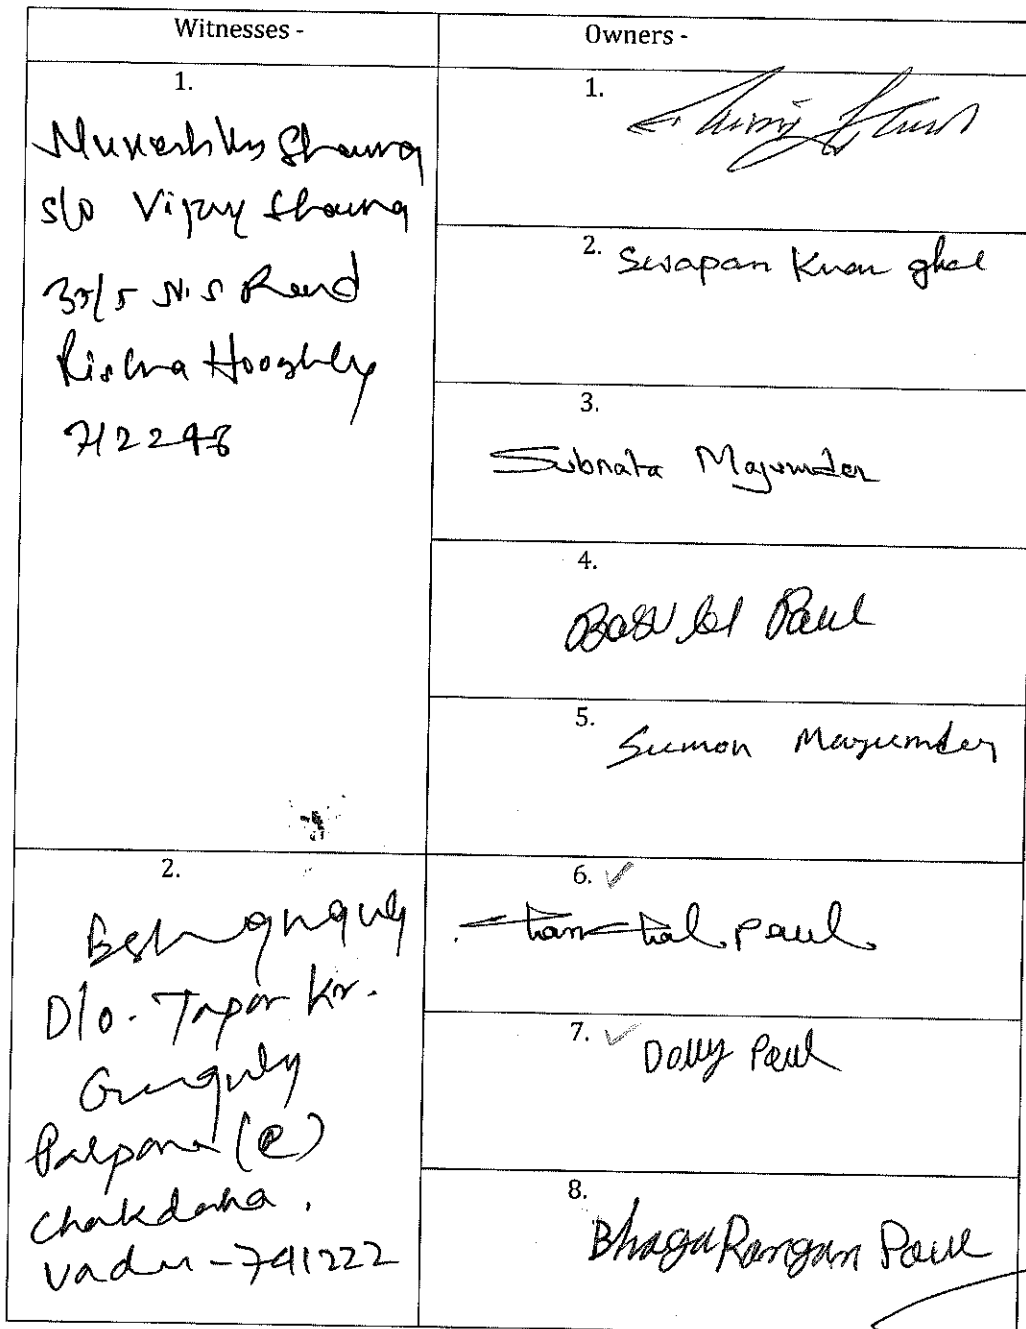 Witnesses -
Owners -
1.
Mukesh Kr Sharma
s/o Vijay Sharma
35/5 N.S Road
Rishra Hooghly
712248
1.
2. Swapan Kumar ghol
3.
Subrata Majumder
4.
Basu Paul
5.
Sumon Majumder
2.
D/o. Tapan Kr.
Ganguly
Palpara (E)
Chakdaha,
Nadia - 741222
6.
Paul
7.
Dolly Paul
8.
Bhaga Rangan Paul